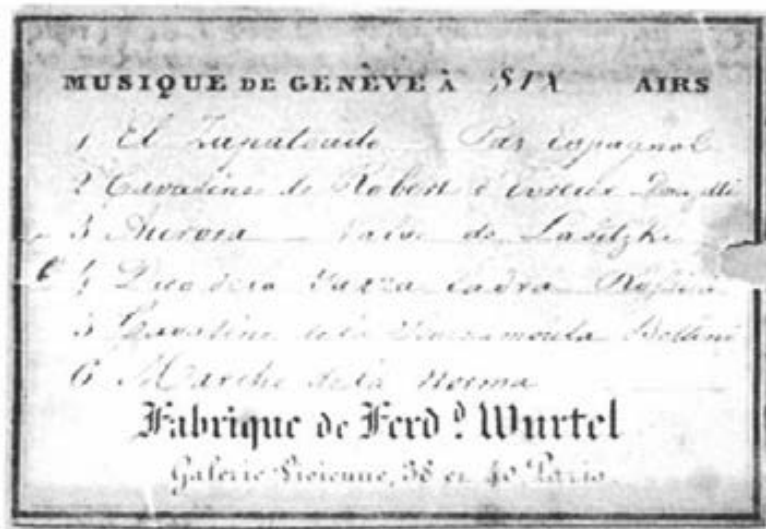 MUSIQUE DE GENÈVE À SIX AIRS
1 El Zapateado Pas Espagnol
2 Cavatine de Robert d'Evreux
3 Aurora Valse de Labitzki
4 Duo de la
5 Cavatine de la Bellini
6 Marche de la Norma
Fabrique de Ferd.d Wurtel
Galerie Vivienne, 38 et 40 Paris.